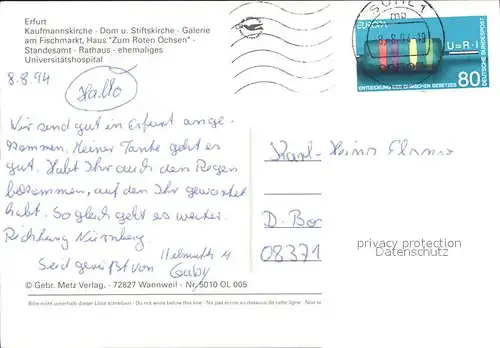 Erfurt
Kaufmannskirche · Dom u. Stiftskirche · Galerie
am Fischmarkt, Haus "Zum Roten Ochsen" -
Standesamt - Rathaus - ehemaliges
Universitätshospital
8.8.94
Hallo
Wir sind gut in Erfurt ange-
kommen. Meiner Tante geht es
gut. Habt Ihr auch den Regen
bekommen, auf den Ihr gewartet
habt. So gleich geht es weiter.
Richtung Nürnberg.
Seid gegrüßt von Helmuth u
Gaby
© Gebr. Metz Verlag. - 72827 Wannweil - Nr. 5010 OL 005
Bitte nicht unterhalb dieser Linie schreiben - Do not write below this line - Ne pas écrire au dessous de cette ligne - Non
SUHL 1
mb
EUROPA
U=R·I
ENTDECKUNG DES OHMSCHEN GESETZES
80
DEUTSCHE BUNDESPOST
Karl-Heinz
D. Bor
08371
privacy protection
VEREINDATA